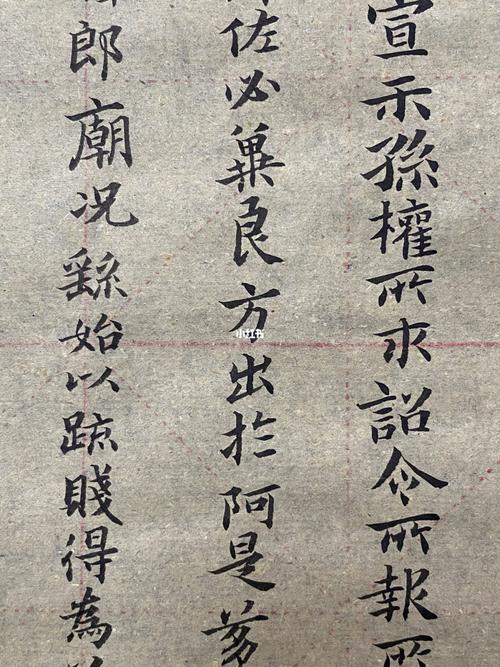 宣示孫權所求詔令所報所
佐必冀良方出於阿是芻
郎廟况繇始以踈賤得為
小红书